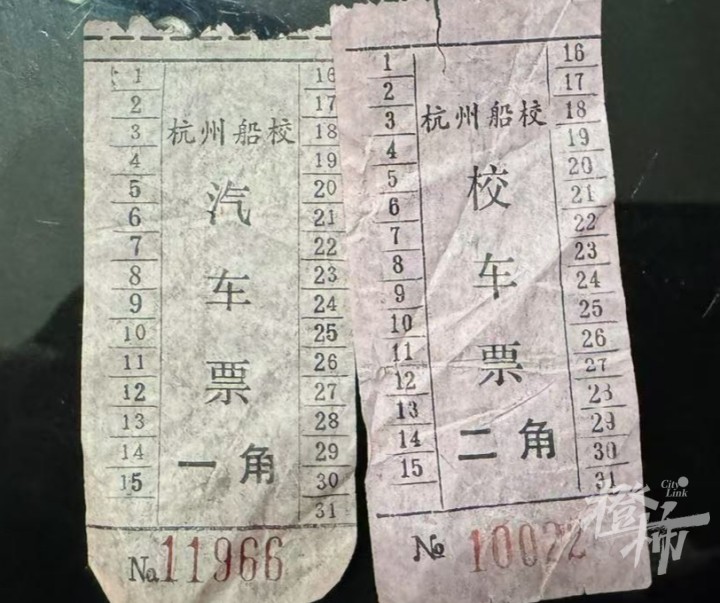 杭州船校
汽车票
一角
1
2
3
4
5
6
7
8
9
10
11
12
13
14
15
16
17
18
19
20
21
22
23
24
25
26
27
28
29
30
31
No 11966
杭州船校
校车票
二角
1
2
3
4
5
6
7
8
9
10
11
12
13
14
15
16
17
18
19
20
21
22
23
24
25
26
27
28
29
30
31
No 10022
City Link
橙柿